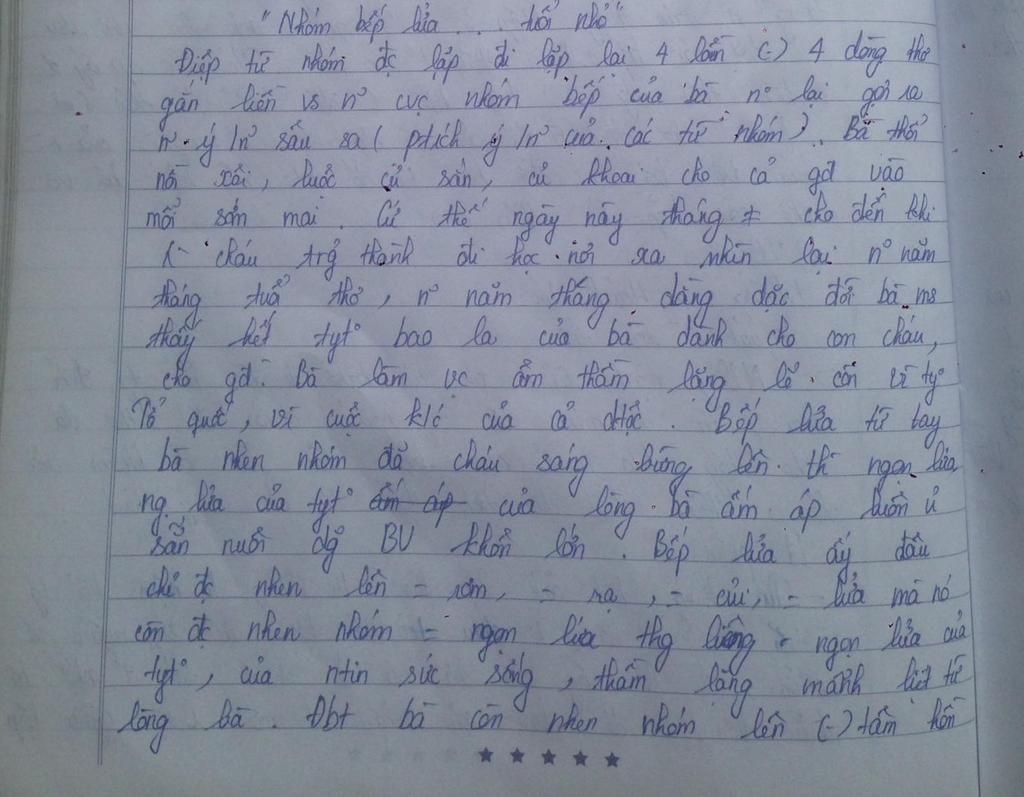 "Nhóm bếp lửa ... tuổi nhỏ"
Điệp từ nhóm đc lặp đi lặp lại 4 lần (-) 4 dòng thơ
gắn liền vs n~ cvc nhóm bếp của bà n~ lại gợi ra
n~ ý/n~ sâu sa ( ptích ý/n~ của các từ nhóm). Bà thổi
nồi xôi, luộc củ sắn, củ khoai cho cả gđ vào
mỗi sớm mai. Cứ thế ngày này tháng ≠ cho đến khi
cháu trở thành đi học nơi xa nhìn lại n~ năm
tháng tuổi thơ, n~ năm tháng dằng dặc đời bà ms
thấy hết tyt~ bao la của bà dành cho con cháu,
cho gđ. Bà làm vc âm thầm lặng lẽ còn vì ty~
Tổ quốc, vì cuộc k/c của cả dtộc. Bếp lửa từ tay
bà nhen nhóm đã cháu sáng bừng lên thì ngọn lửa
ng. lửa của tyt~ ấm áp của lòng bà ấm áp luôn ủ
sẵn nuôi dg BV khôn lớn. Bếp lửa ấy đâu
chỉ đc nhen lên = rơm, = rạ, = củi, = lửa mà nó
còn đc nhen nhóm = ngọn lửa thg liêng - ngọn lửa của
tyt~, của ntin sức sống, thầm lặng mãnh liệt từ
lòng bà. Đbt bà còn nhen nhóm lên (-) tâm hồn